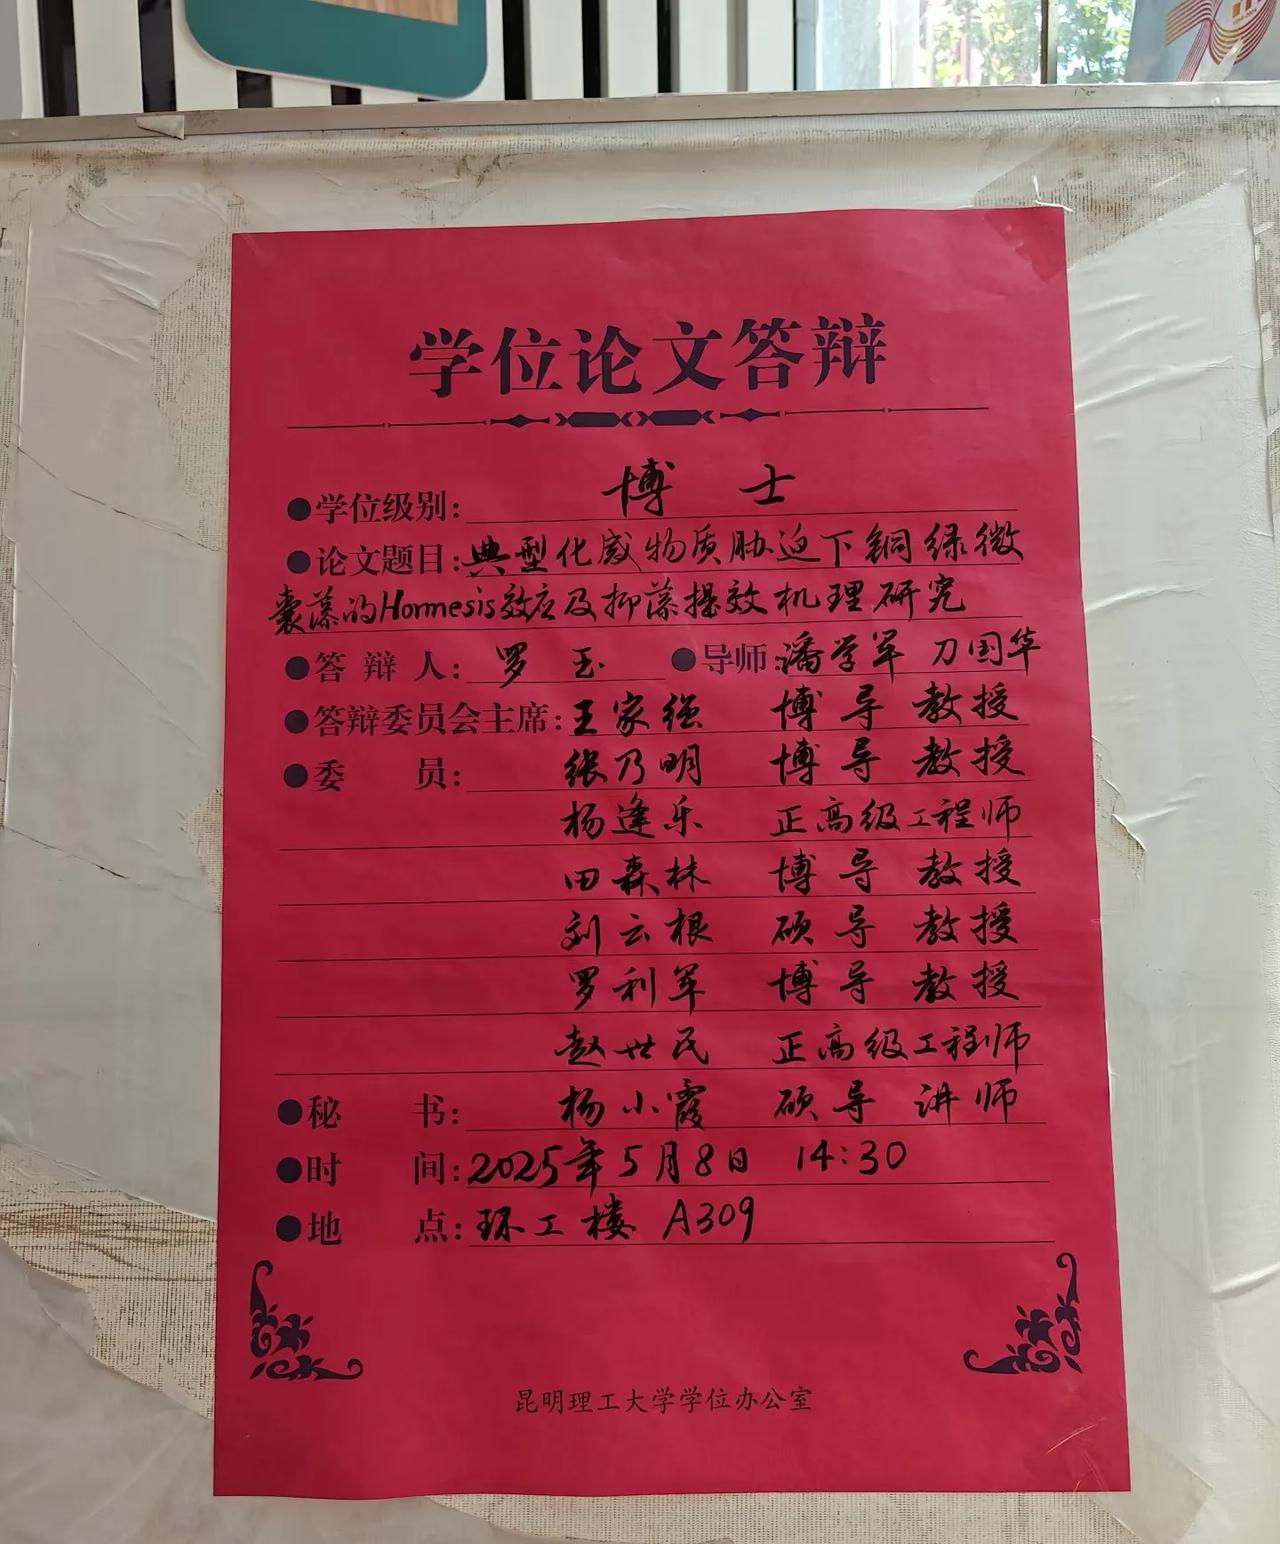 学位论文答辩
●学位级别: 博士
●论文题目:典型化感物质胁迫下铜绿微
囊藻的Hormesis效应及抑藻提效机理研究
●答辩人: 罗玉 ●导师:潘学军 刀国华
●答辩委员会主席:王家强 博导 教授
●委员: 张乃明 博导 教授
杨逢乐 正高级工程师
田森林 博导 教授
刘云根 硕导 教授
罗利军 博导 教授
赵世民 正高级工程师
●秘书: 杨小霞 硕导 讲师
●时间:2025年5月8日 14:30
●地点:环工楼 A309
昆明理工大学学位办公室